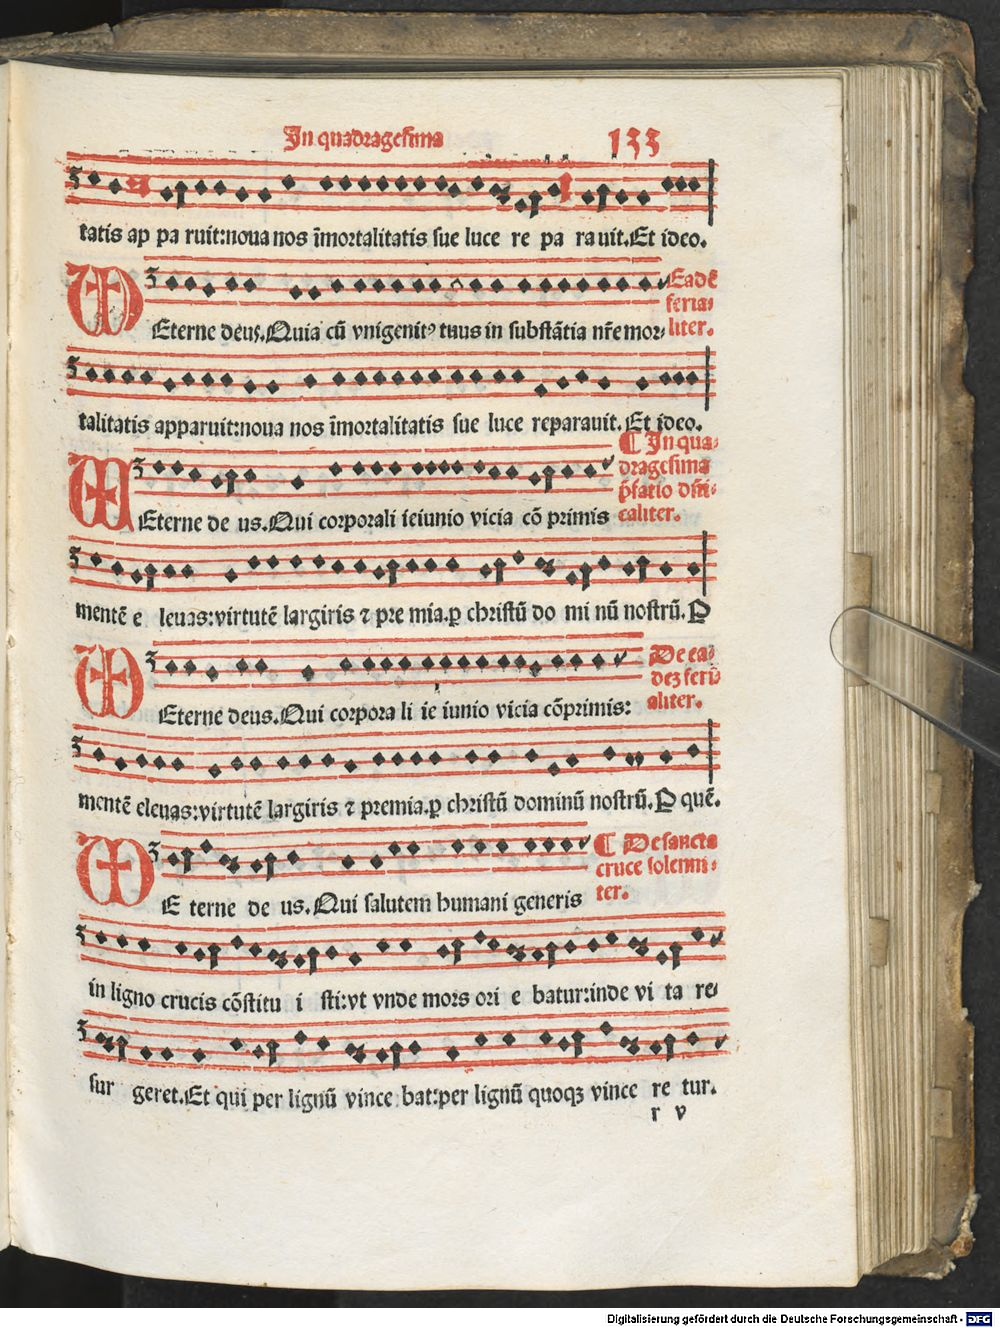 In quadragesima 133
tatis ap pa ruit:noua nos īmortalitatis sue luce re pa ra uit.Et ideo.
Eadē
feria⸗
liter.
Eterne deus.Quia cū vnigenitꝰ tuus in substātia nr̄e mor⸗
talitatis apparuit:noua nos īmortalitatis sue luce reparauit. Et ideo.
¶ In qua⸗
dragesima
p̄fatio dn̄i⸗
caliter.
Eterne de us.Qui corporali ieiunio vicia cō primis
mentē e leuas:virtutē largiris ⁊ pre mia.p christū do mi nū nostrū.P
De ea⸗
dez feri⸗
aliter.
Eterne deus.Qui corpora li ie iunio vicia cōprimis:
mentē eleuas:virtutē largiris ⁊ premia.p christū dominū nostrū.P quē.
¶ De sancta
cruce solenni⸗
ter.
E terne de us.Qui salutem humani generis
in ligno crucis cōstitu i sti:vt vnde mors ori e batur:inde vi ta re⸗
sur geret.Et qui per lignū vince bat:per lignū quoqꝫ vince re tur.
r v
Digitalisierung gefördert durch die Deutsche Forschungsgemeinschaft - DFG